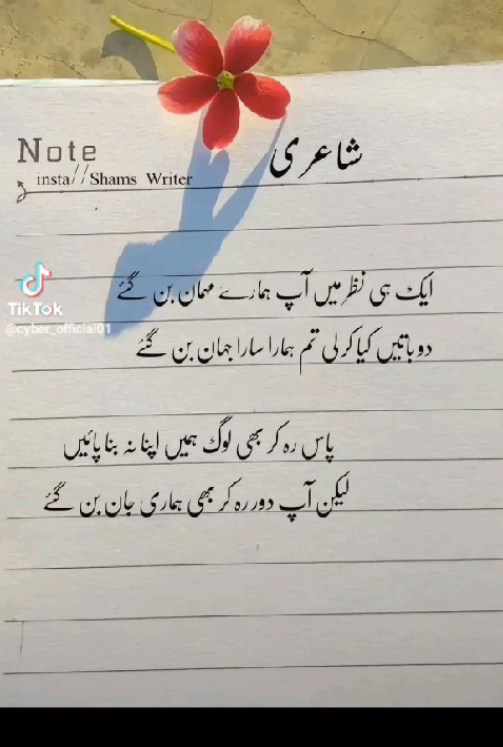 Note
insta//Shams Writer
شاعری
ایک ہی نظر میں آپ ہمارے مہمان بن گئے
دو باتیں کیا کر لی تم ہمارا سارا جہان بن گئے
پاس رہ کر بھی لوگ ہمیں اپنا نہ بنا پائیں
لیکن آپ دور رہ کر بھی ہماری جان بن گئے
TikTok
@cyber_official01